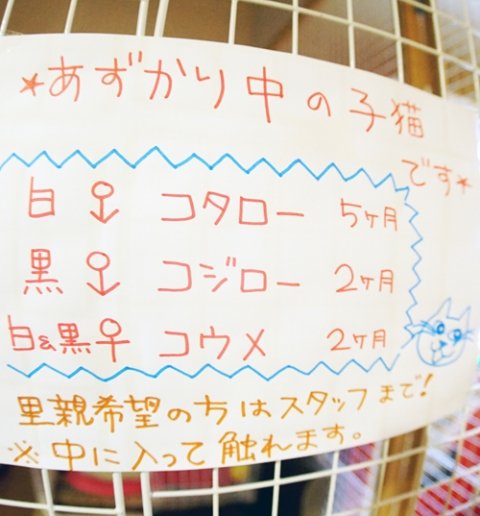 *あずかり中の子猫
です*
白 ♂ コタロー 5ヶ月
黒 ♂ コジロー 2ヶ月
白&黒 ♀ コウメ 2ヶ月
里親希望の方はスタッフまで!
※中に入って触れます。